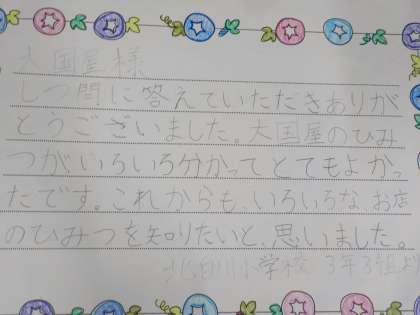 大国屋様
しつ問に答えていただきありが
とうございました。大国屋のひみ
つがいろいろ分かってとてもよかっ
たです。これからも、いろいろな、お店
のひみつを知りたいと、思いました。
北白川小学校 3年3組より